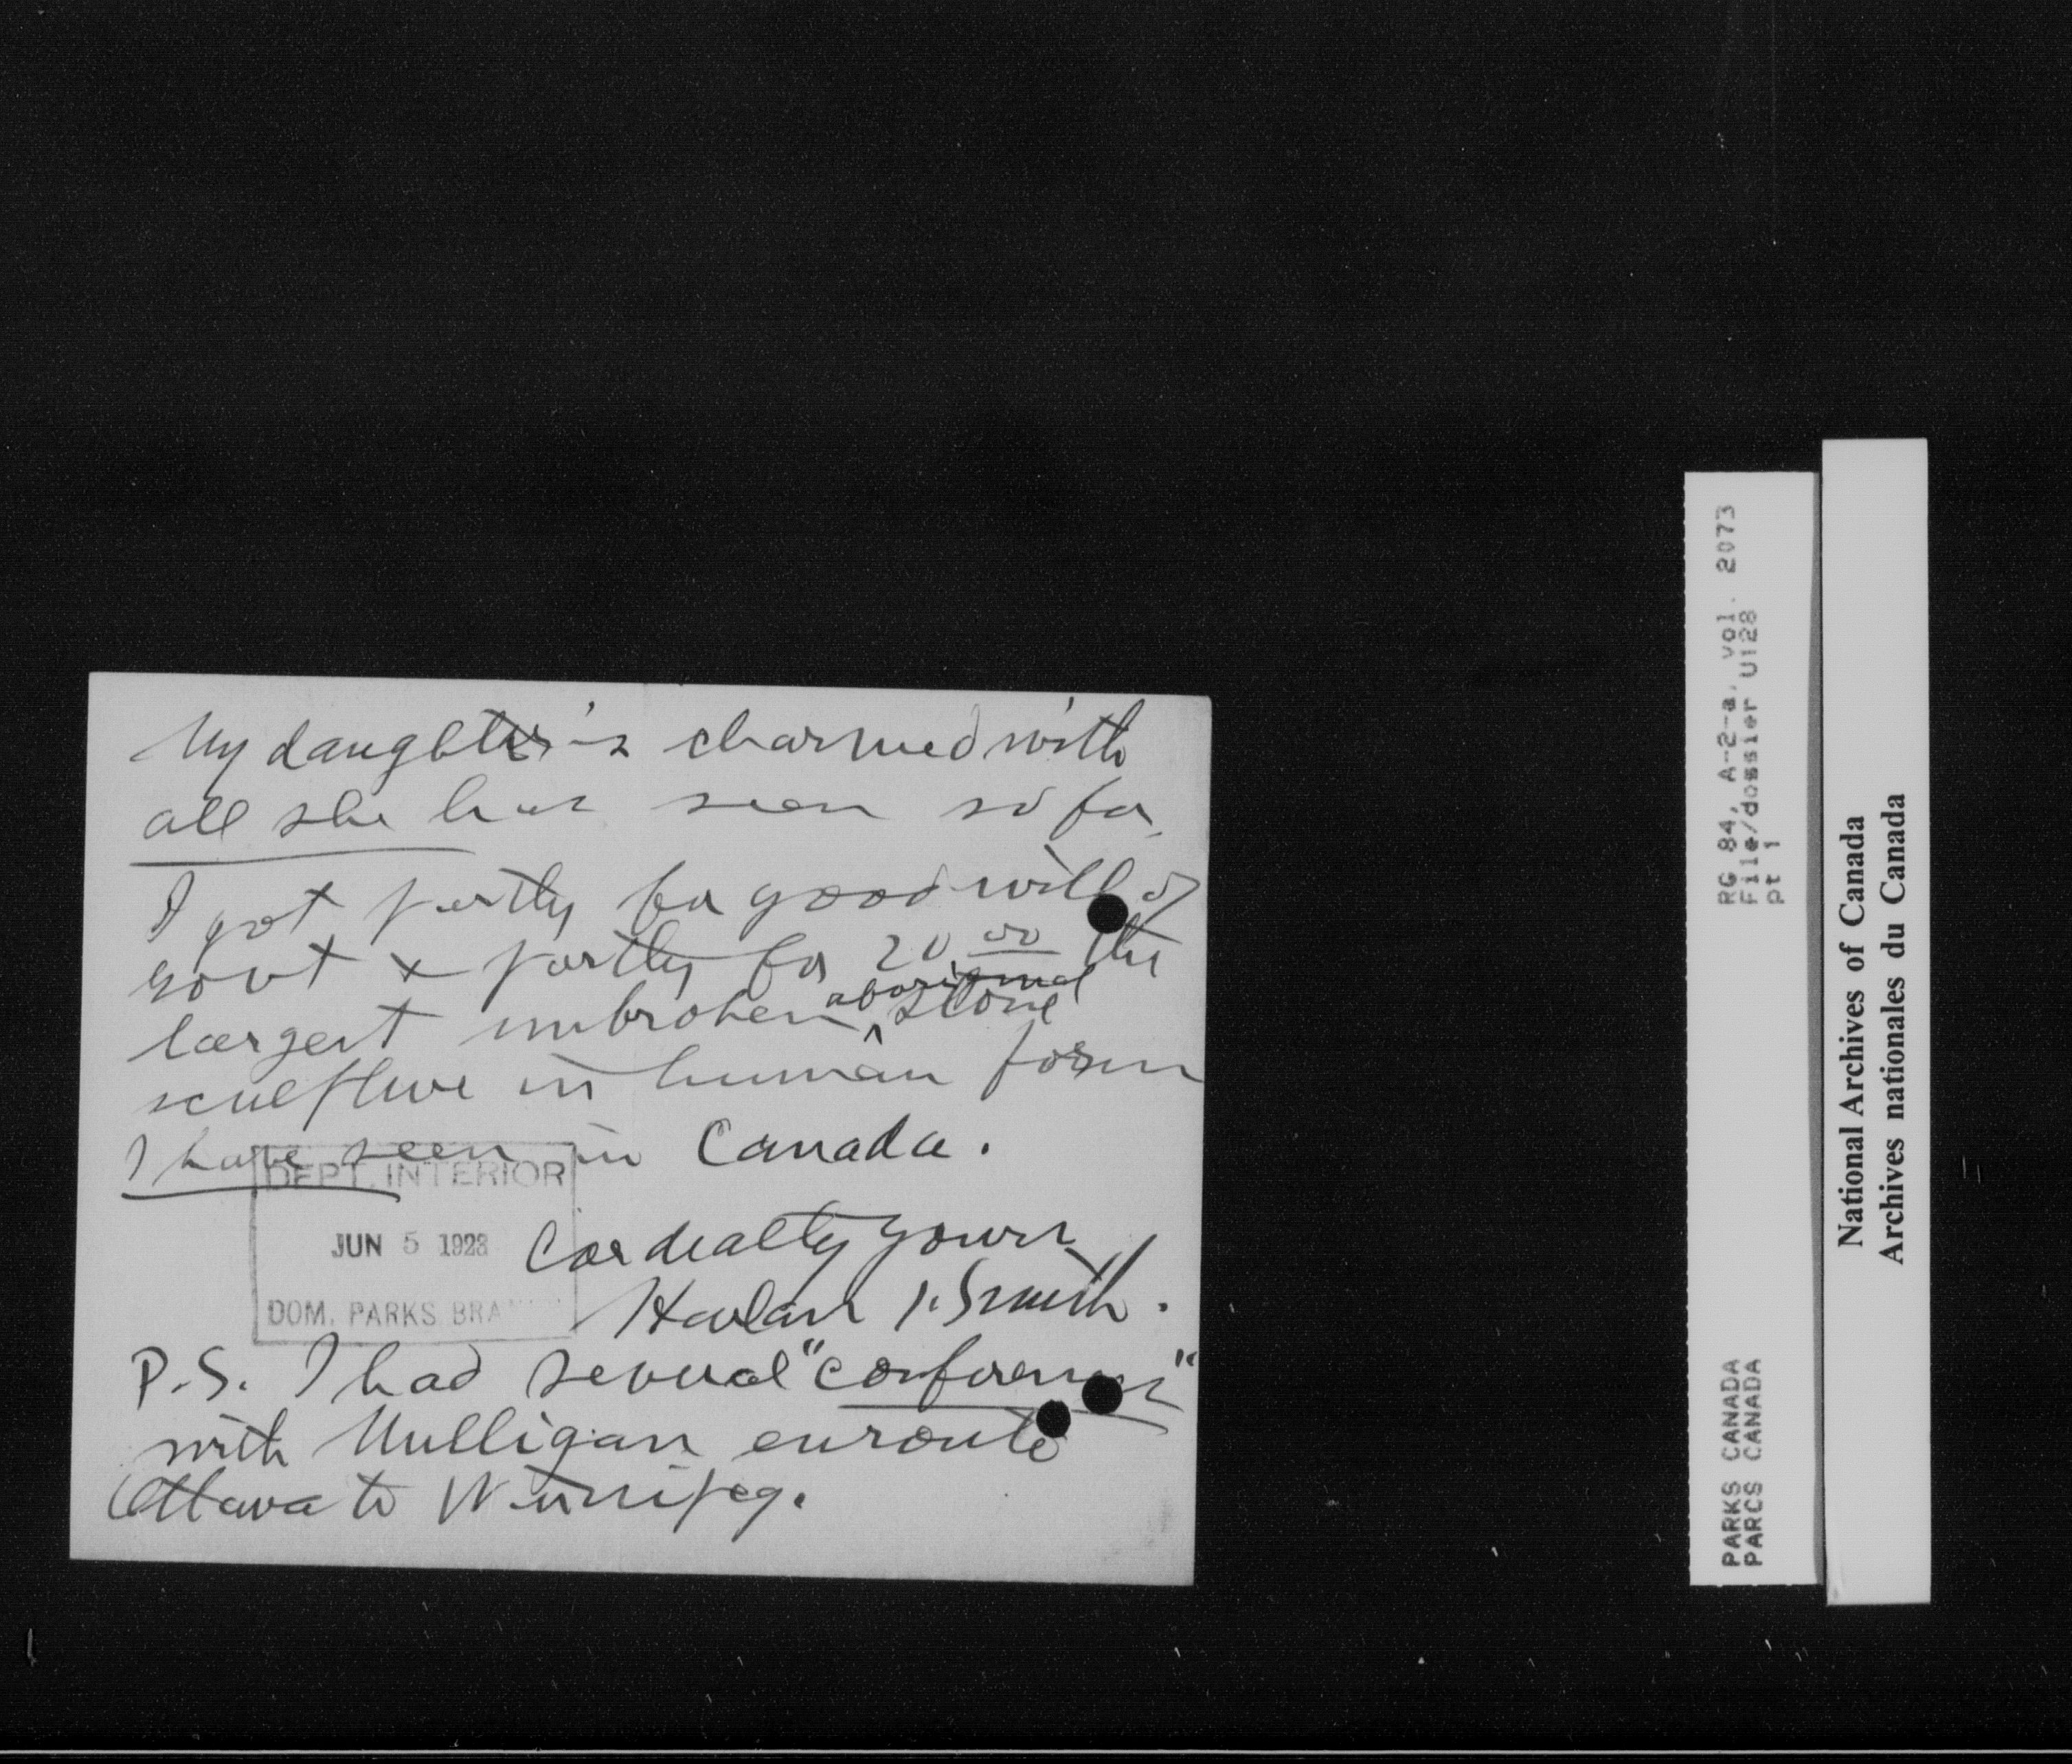 My daughter is charmed with
all she has seen so far.
I got partly for good will of
govt & partly for 20 00 the
largest unbroken ^ aboriginal stone
sculpture in human form
I have seen in Canada.
Cordially yours
Harlan I. Smith.
P.S. I had several "conferences"
with Mulligan enroute
Ottawa to Winnipeg.
DEPT. INTERIOR
JUN 5 1923
DOM. PARKS
RG 84, A-2-a, vol. 2073
File/dossier U128
pt 1
PARKS CANADA
PARCS CANADA
National Archives of Canada
Archives nationales du Canada